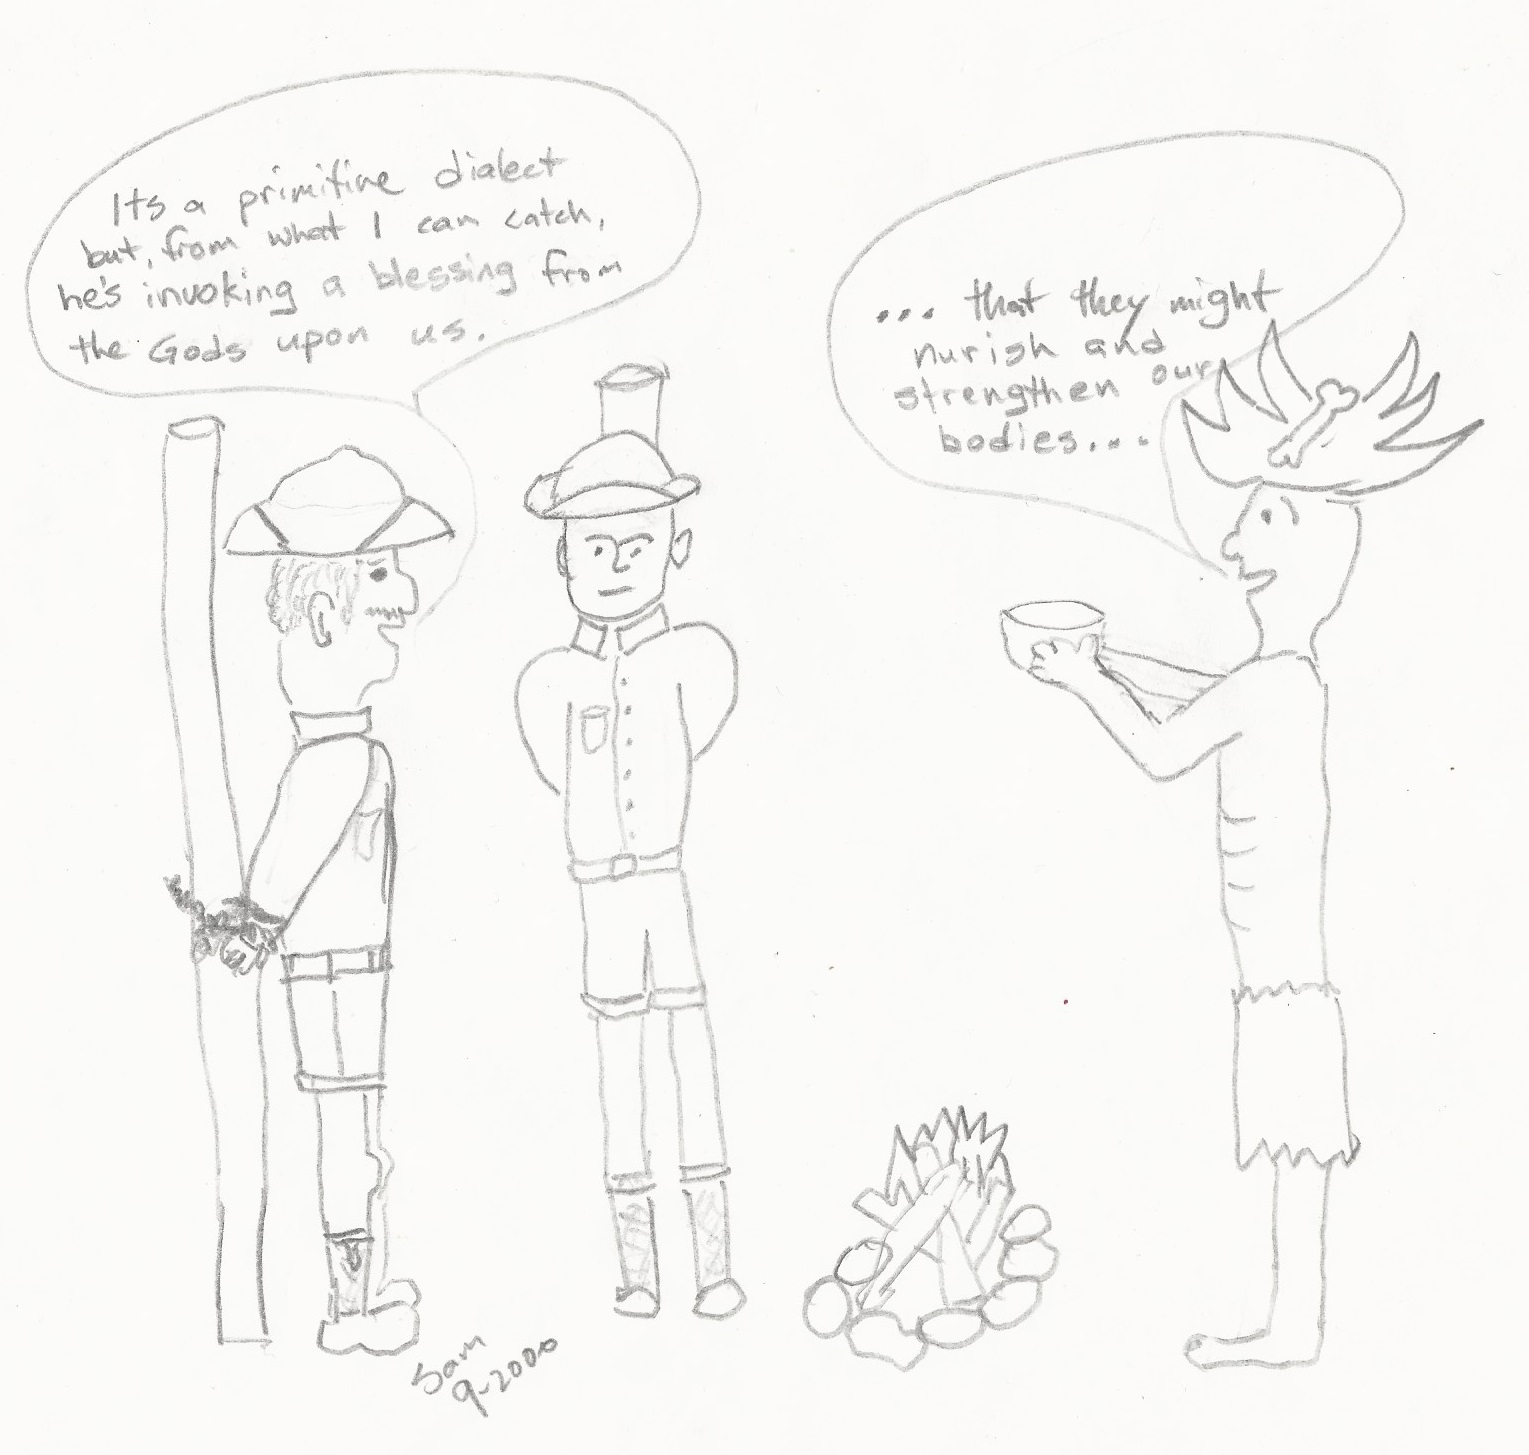 Its a primitive dialect
but, from what I can catch,
he's invoking a blessing from
the Gods upon us.
... that they might
nurish and
strengthen our
bodies....
Sam
9-2000